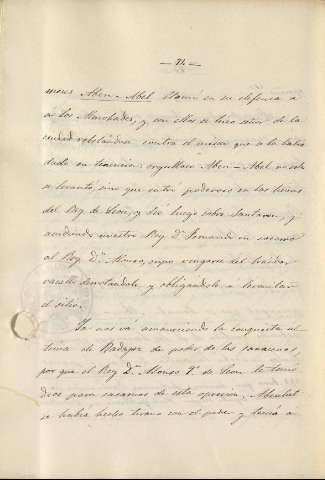 — 71. —
moros Aben-Abel llamó en su defensa á
á los Almohades, y con ellos se hizo señor de la
ciudad rebelándose contra el mismo que se la había
dado en tenencia: orgulloso Aben-Abel no solo
se levanta, sino que entra poderoso en las tierras
del Rey de Leon, y dió luego sobre Santarem, y
acudiendo nuestro Rey Dn. Fernando en socorro
al Rey Dn. Alonso, supo vengarse del traidor
vasallo derrotándole y obligándole á levantar
el sitio.
Ya nos vá amaneciendo la conquista el
toma de Badajoz de poder de los sarracenos,
por que el Rey Dn. Alonso 9º. de Leon le tomó
dice para sacarnos de esta opresion. Abenhut
se había hecho tirano con el poder y hacía á